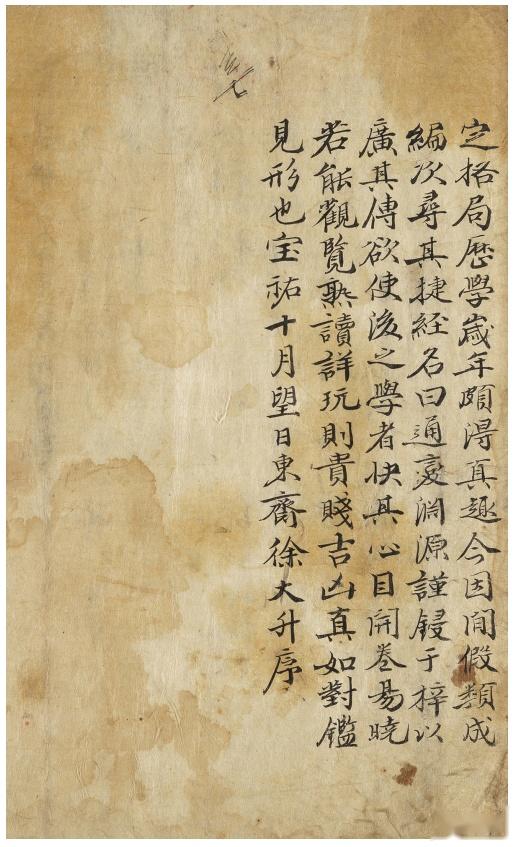 定格局歴學歲年頗淂真趣今因閒假類成
編次尋其捷経名曰通変淵源謹鋟于梓以
廣其傳欲使後之學者快其心目開卷昜曉
若能觀覽熟讀詳玩則貴賤吉凶真如對鑑
見形也宝祐十月望日東齋徐大升序